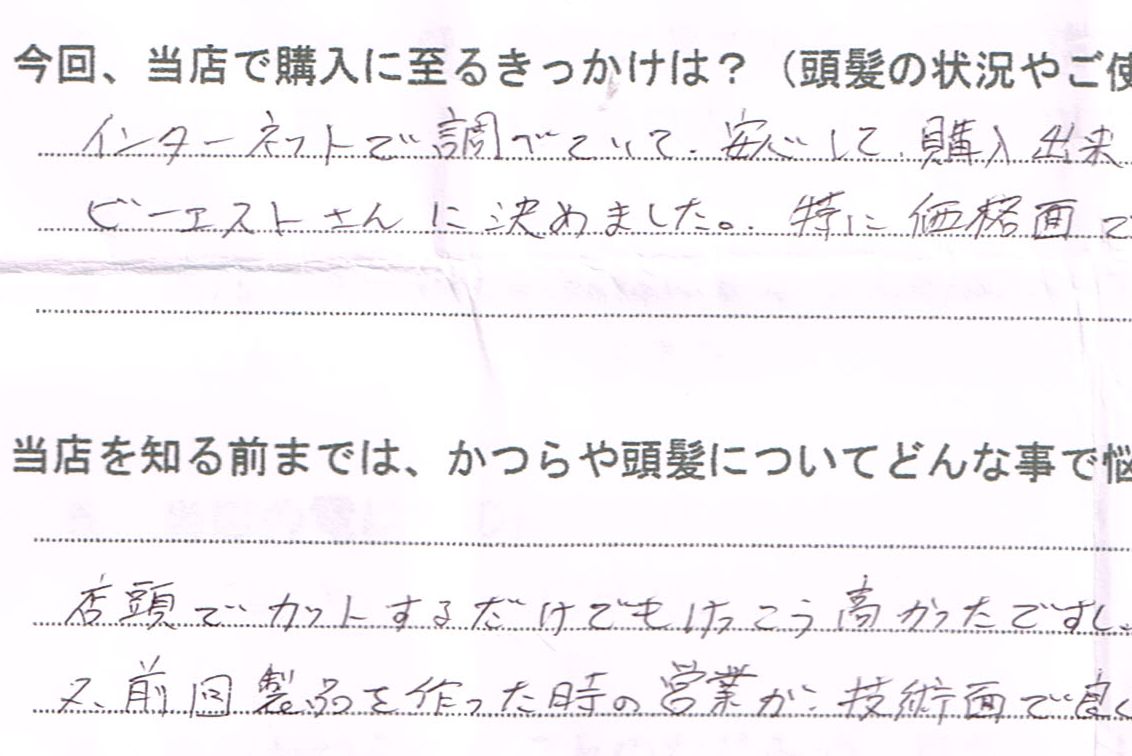 今回、当店で購入に至るきっかけは？（頭髪の状況やご使
インターネットで調べていて、安心して、購入出来
ビーエストさんに決めました。特に価格面で
当店を知る前までは、かつらや頭髪についてどんな事で悩
店頭でカットするだけでもけっこう高かったですし、
又、前回製品を作った時の営業が、技術面で良く